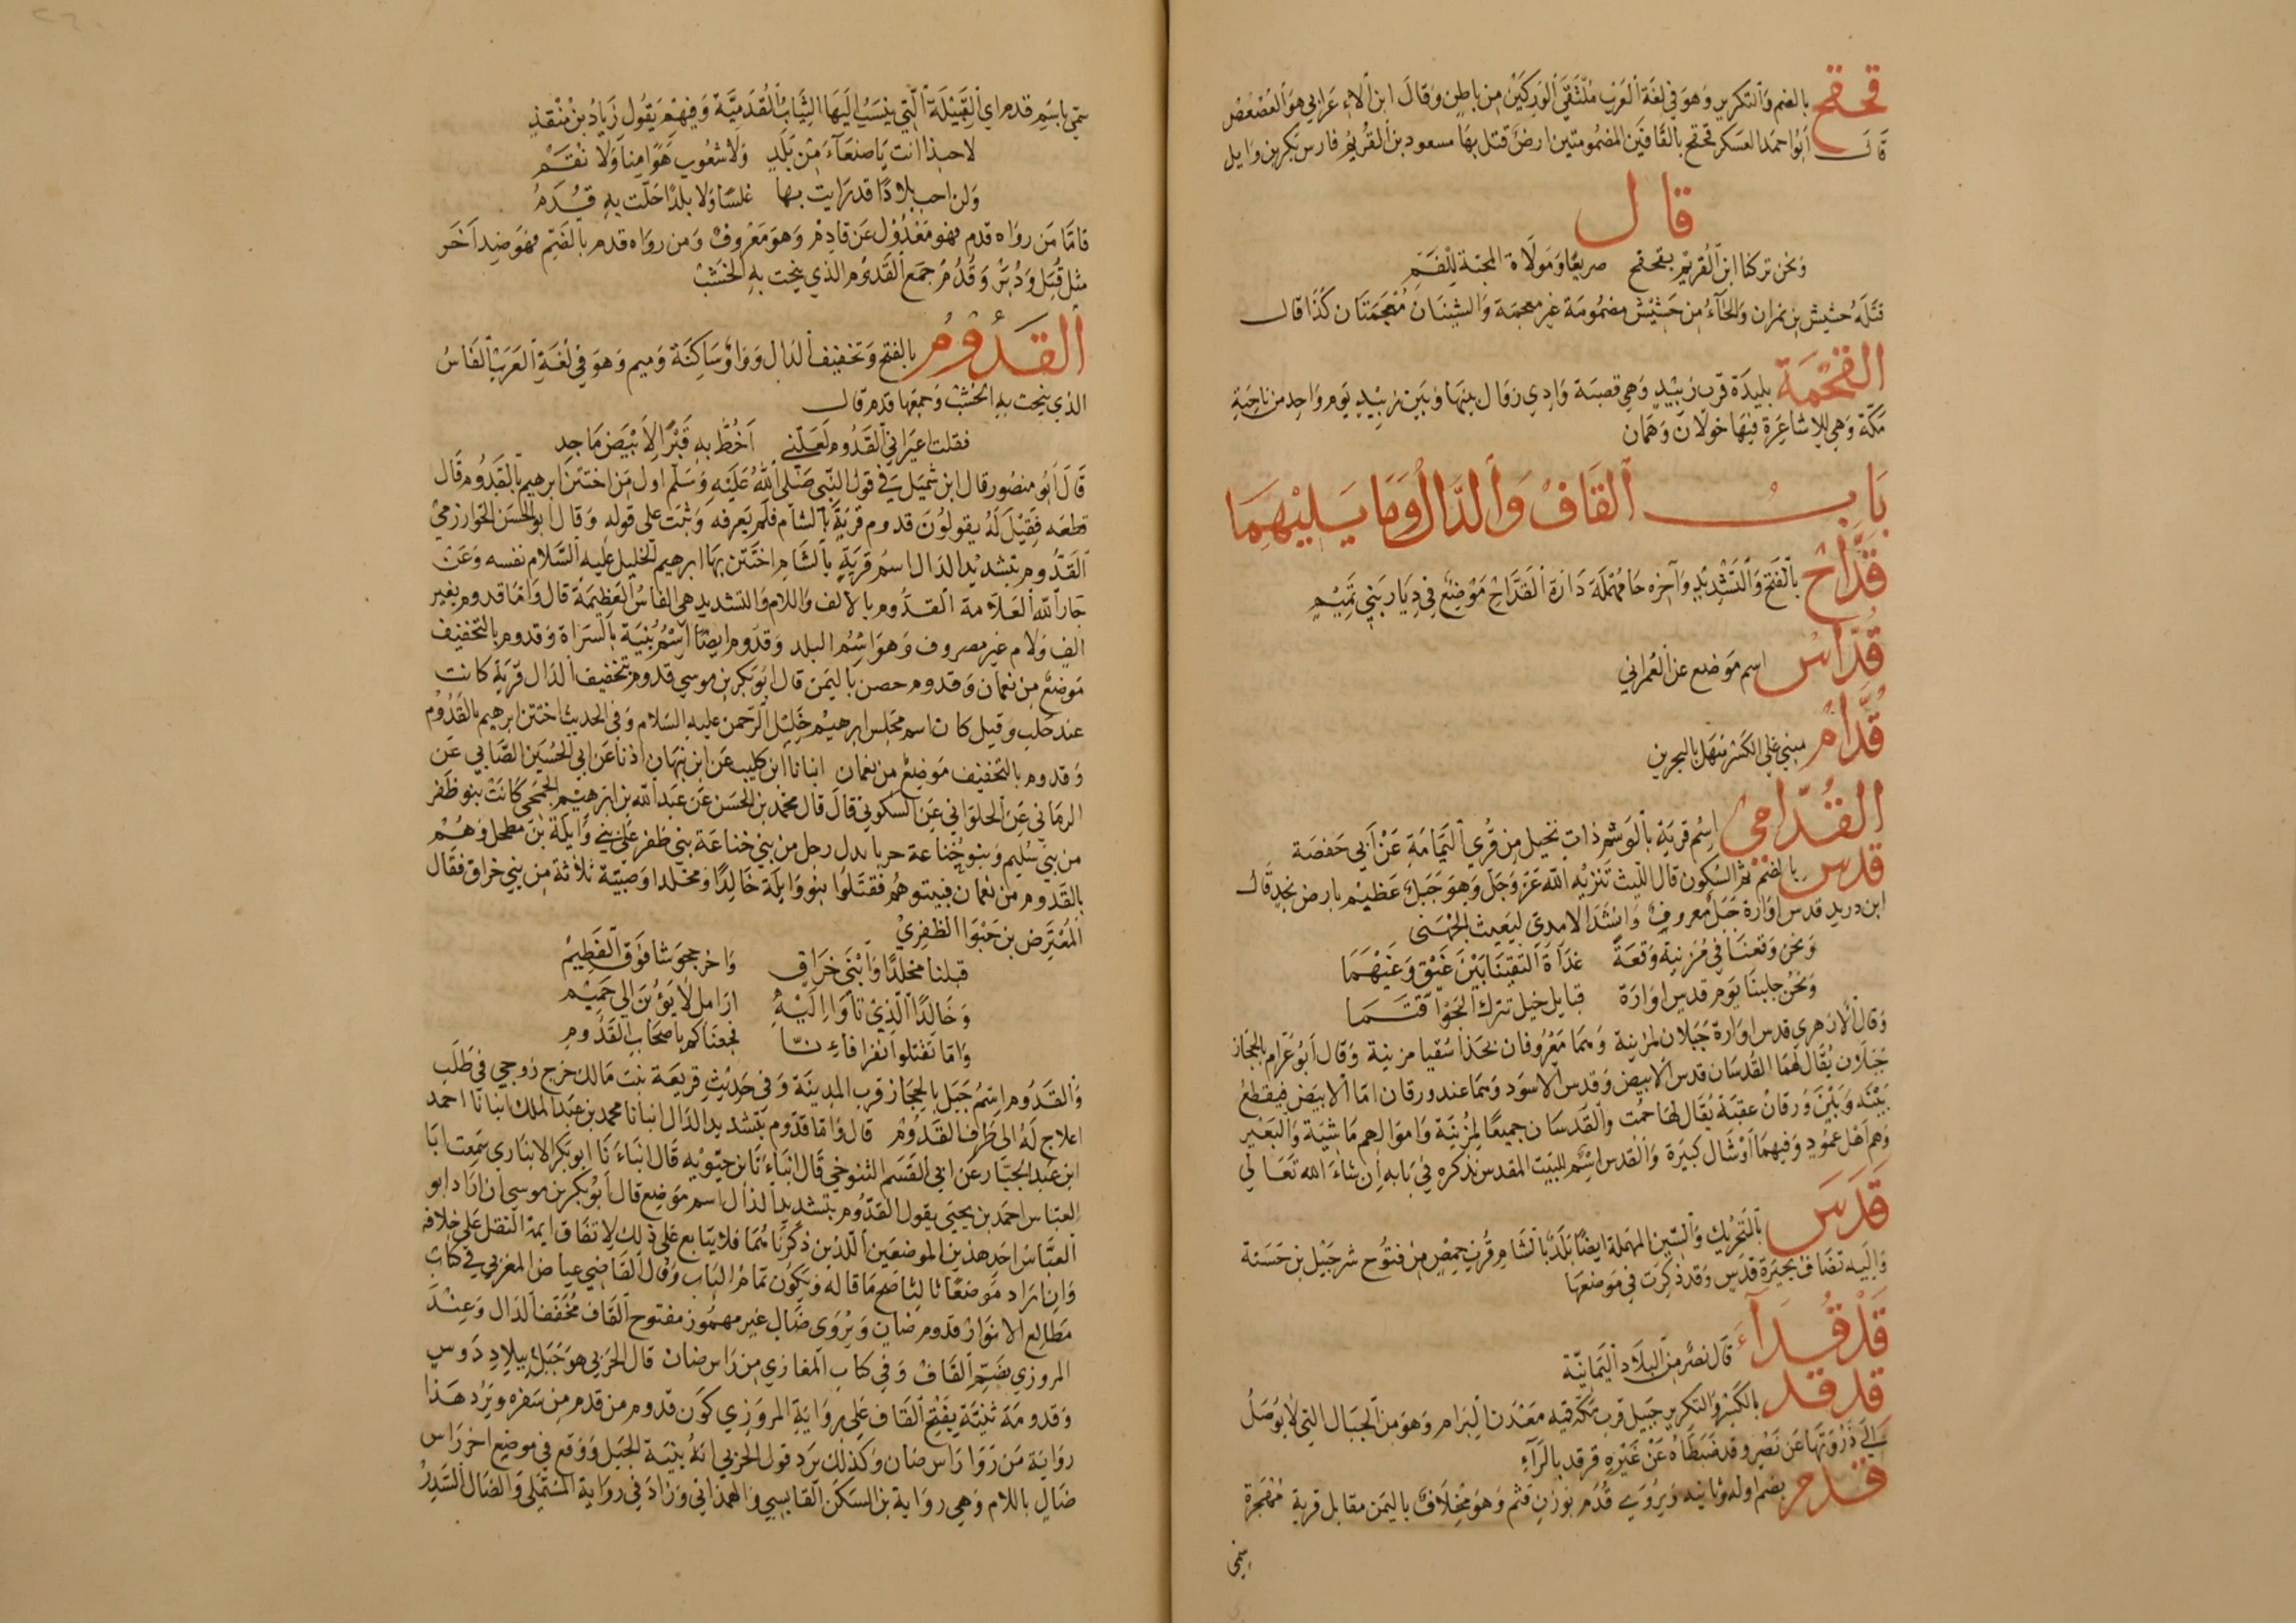 قحقح بالضم والتكرير وهو في لغة العرب ملتقى الوركين من باطن وقال ابن الاعرابي هو العصعص
قال ابو احمد العسكري قحقح بالقافين المضمومتين ارض قتل بها مسعود بن القريم فارس بكر بن وايل
قال
ونحن تركنا ابن القريم بقحقح صريعا ومولاة المجبة للفم
قتله حشيش بن نمران والحاء من حشيش مضمومة غير معجمة والشينان معجمتان كذا قال
القحمة بليدة قرب زبيد وهي قصبة وادي زوال بينها وبين زبيد يوم واحد من ناحية
مكة وهي للاشاعرة فيها خولان وهمان
باب القاف والدال وما يليهما
قداح بالفتح والتشديد وآخره حا مهملة دارة القداح موضع في ديار بني تميم
قداس اسم موضع عن العمراني
قدام مبني على الكسر منهل بالبحرين
القدامي اسم قرية بالوشم ذات نخيل من قرى اليمامة عن أبي حفصة
قدس بالضم ثم السكون قال الليث تنزيه الله عز وجل وهو جبل عظيم بارض نجد قال
ابن دريد قدس اوارة جبل معروف وانشد الامدي لبعيث الجهني
ونحن وقعنا في مزينة وقعة غداة التقينا بين غيق وعيهما
ونحن جلبنا يوم قدس اوارة قبايل خيل تترك الجو اقتما
وقال الازهري قدس اوارة جبلان لمزينة وهما معروفان بحذا سقيا مزينة وقال ابو عرام بالحجاز
جبلان يقال لهما القدسان قدس الابيض وقدس الاسود وهما عند ورقان اما الابيض فيقطع
بينه وبين ورقان عقبة يقال لها حمت والقدسان جميعا لمزينة واموالهم ماشية والبعير
وهم اهل عمود وفيهما اوشال كبيرة والقدس اسم للبيت المقدس نذكره في بابه ان شاء الله تعالى
قدس بالتحريك والسين المهملة ايضا بلد بالشام قرب حمص من فتوح شرحبيل بن حسنة
واليه تضاف بحيرة قدس وقد ذكرت في موضعها
قدقداء قال نصر من البلاد اليمانية
قدقد بالكسر والتكرير جبيل قرب مكة فيه معدن البرام وهو من الجبال التي لا يوصل
الى ذروتها عن نصر وقد ضبطاه عن غيره قرقد بالراء
قدم بضم اوله وثانيه ويروى قدم بوزن قثم وهو مخلاف باليمن مقابل قرية مهجرة
سمي باسم قدم اي القبيلة التي ينسب اليها الثياب القدمية وفيهم يقول زياد بن منقذ
لا حبذا انت يا صنعاء من بلد ولا شعوب هوا منا ولا نقم
ولن احب بلادا قد رايت بها عنسا ولا بلدا حلت به قدم
فاما من رواه قدم فهو معدول عن قادم وهو معروف ومن رواه قدم بالضم فهو ضد آخر
مثل قبل ودبر وقدم جمع القدوم الذي ينحت به الخشب
القدوم بالفتح وتخفيف الدال وواو ساكنة وميم وهو في لغة العرب الفاس
الذي ينحت به الخشب وجمعها قدم قال
فقلت اعيراني القدوم لعلني اخط به قبرا لابيض ماجد
قال ابو منصور قال ابن شميل في قول النبي صلى الله عليه وسلم اول من اختتن ابرهيم بالقدوم قال
قطعه فقيل له يقولون قدوم قرية بالشام فلم يعرفه وثبت على قوله وقال ابو الحسن الخوارزمي
القدوم بتشديد الدال اسم قرية بالشام اختتن بها ابرهيم الخليل عليه السلام نفسه وعن
جار الله العلامة القدوم بالالف واللام والتشديد هي الفاس العظيمة قال واما قدوم بغير
الف ولام غير مصروف وهو اسم البلد وقدوم ايضا اسم ثنية بالسراة وقدوم بالتخفيف
موضع من نعمان وقدوم حصن باليمن قال ابو بكر بن موسى قدوم بتخفيف الدال قرية كانت
عند حلب وقيل كان اسم مجلس ابرهيم خليل الرحمن عليه السلام وفي الحديث اختتن ابرهيم بالقدوم
وقدوم بالتخفيف موضع من نعمان انبانا ابن كليب عن ابن نبهان اذنا عن ابي الحسين الصابي عن
الرماني عن الحلواني عن السكوني قال قال محمد بن الحسن عن عبد الله بن ابرهيم الجمحي كانت بنو ظفر
من بني سليم وبنو خناعة حربا بدل رجل من بني خناعة بني ظفر على بني وايلة بن مطحل وهم
بالقدوم من نعمان فبيتوهم فقتلوا بنو وايلة خالدا ومخلدا وصبية ثلاثة من بني خراق فقال
المعترض بن حبوا الظفري
قبلنا مخلدا وابني خراق واخر جحوشا فوق الفطيم
وخالدا الذي تاوا اليه ارامل لا يؤبن الى حميم
واما تقتلوا نفرا فانا فجعناكم باصحاب القدوم
والقدوم اسم جبل بالحجاز قرب المدينة وفي حديث فريعة بنت مالك خرج زوجي في طلب
اعلاج له الى طرف القدوم قال واما قدوم بتشديد الدال انبانا محمد بن عبد الملك انبانا احمد
ابن عبد الجبار عن ابي القسم التنوخي قال انباءنا بن حيويه قال انباءنا ابو بكر الانباري سمعت ابا
العباس احمد بن يحيى يقول القدوم بتشديد الدال اسم موضع قال ابو بكر بن موسى ان اراد ابو
العباس احد هذين الموضعين اللذين ذكرناهما فلا يتابع على ذلك لاتفاق ايمة النقل على خلافه
وان اراد موضعا ثالثا صح ما قاله ويكون تمام الباب وقال القاضي عياض المغربي في كتاب
مطالع الانوار قدوم ضان ويروى ضال غير مهموز مفتوح القاف مخفف الدال وعند
المروزي بضم القاف وفي كتاب المغازي من راس ضان قال الحربي هو جبل ببلاد دوس
وقدومة ثنية بفتح القاف على رواية المروزي كون قدوم من قدم من سفره ويرد هذا
رواية من روا راس ضان وكذلك يرد قول الحربي انه ثنية الجبل ووقع في موضع اخر راس
ضال باللام وهي رواية بن السكن القابسي والهمذاني وزاد في رواية المستملي والضال السدر